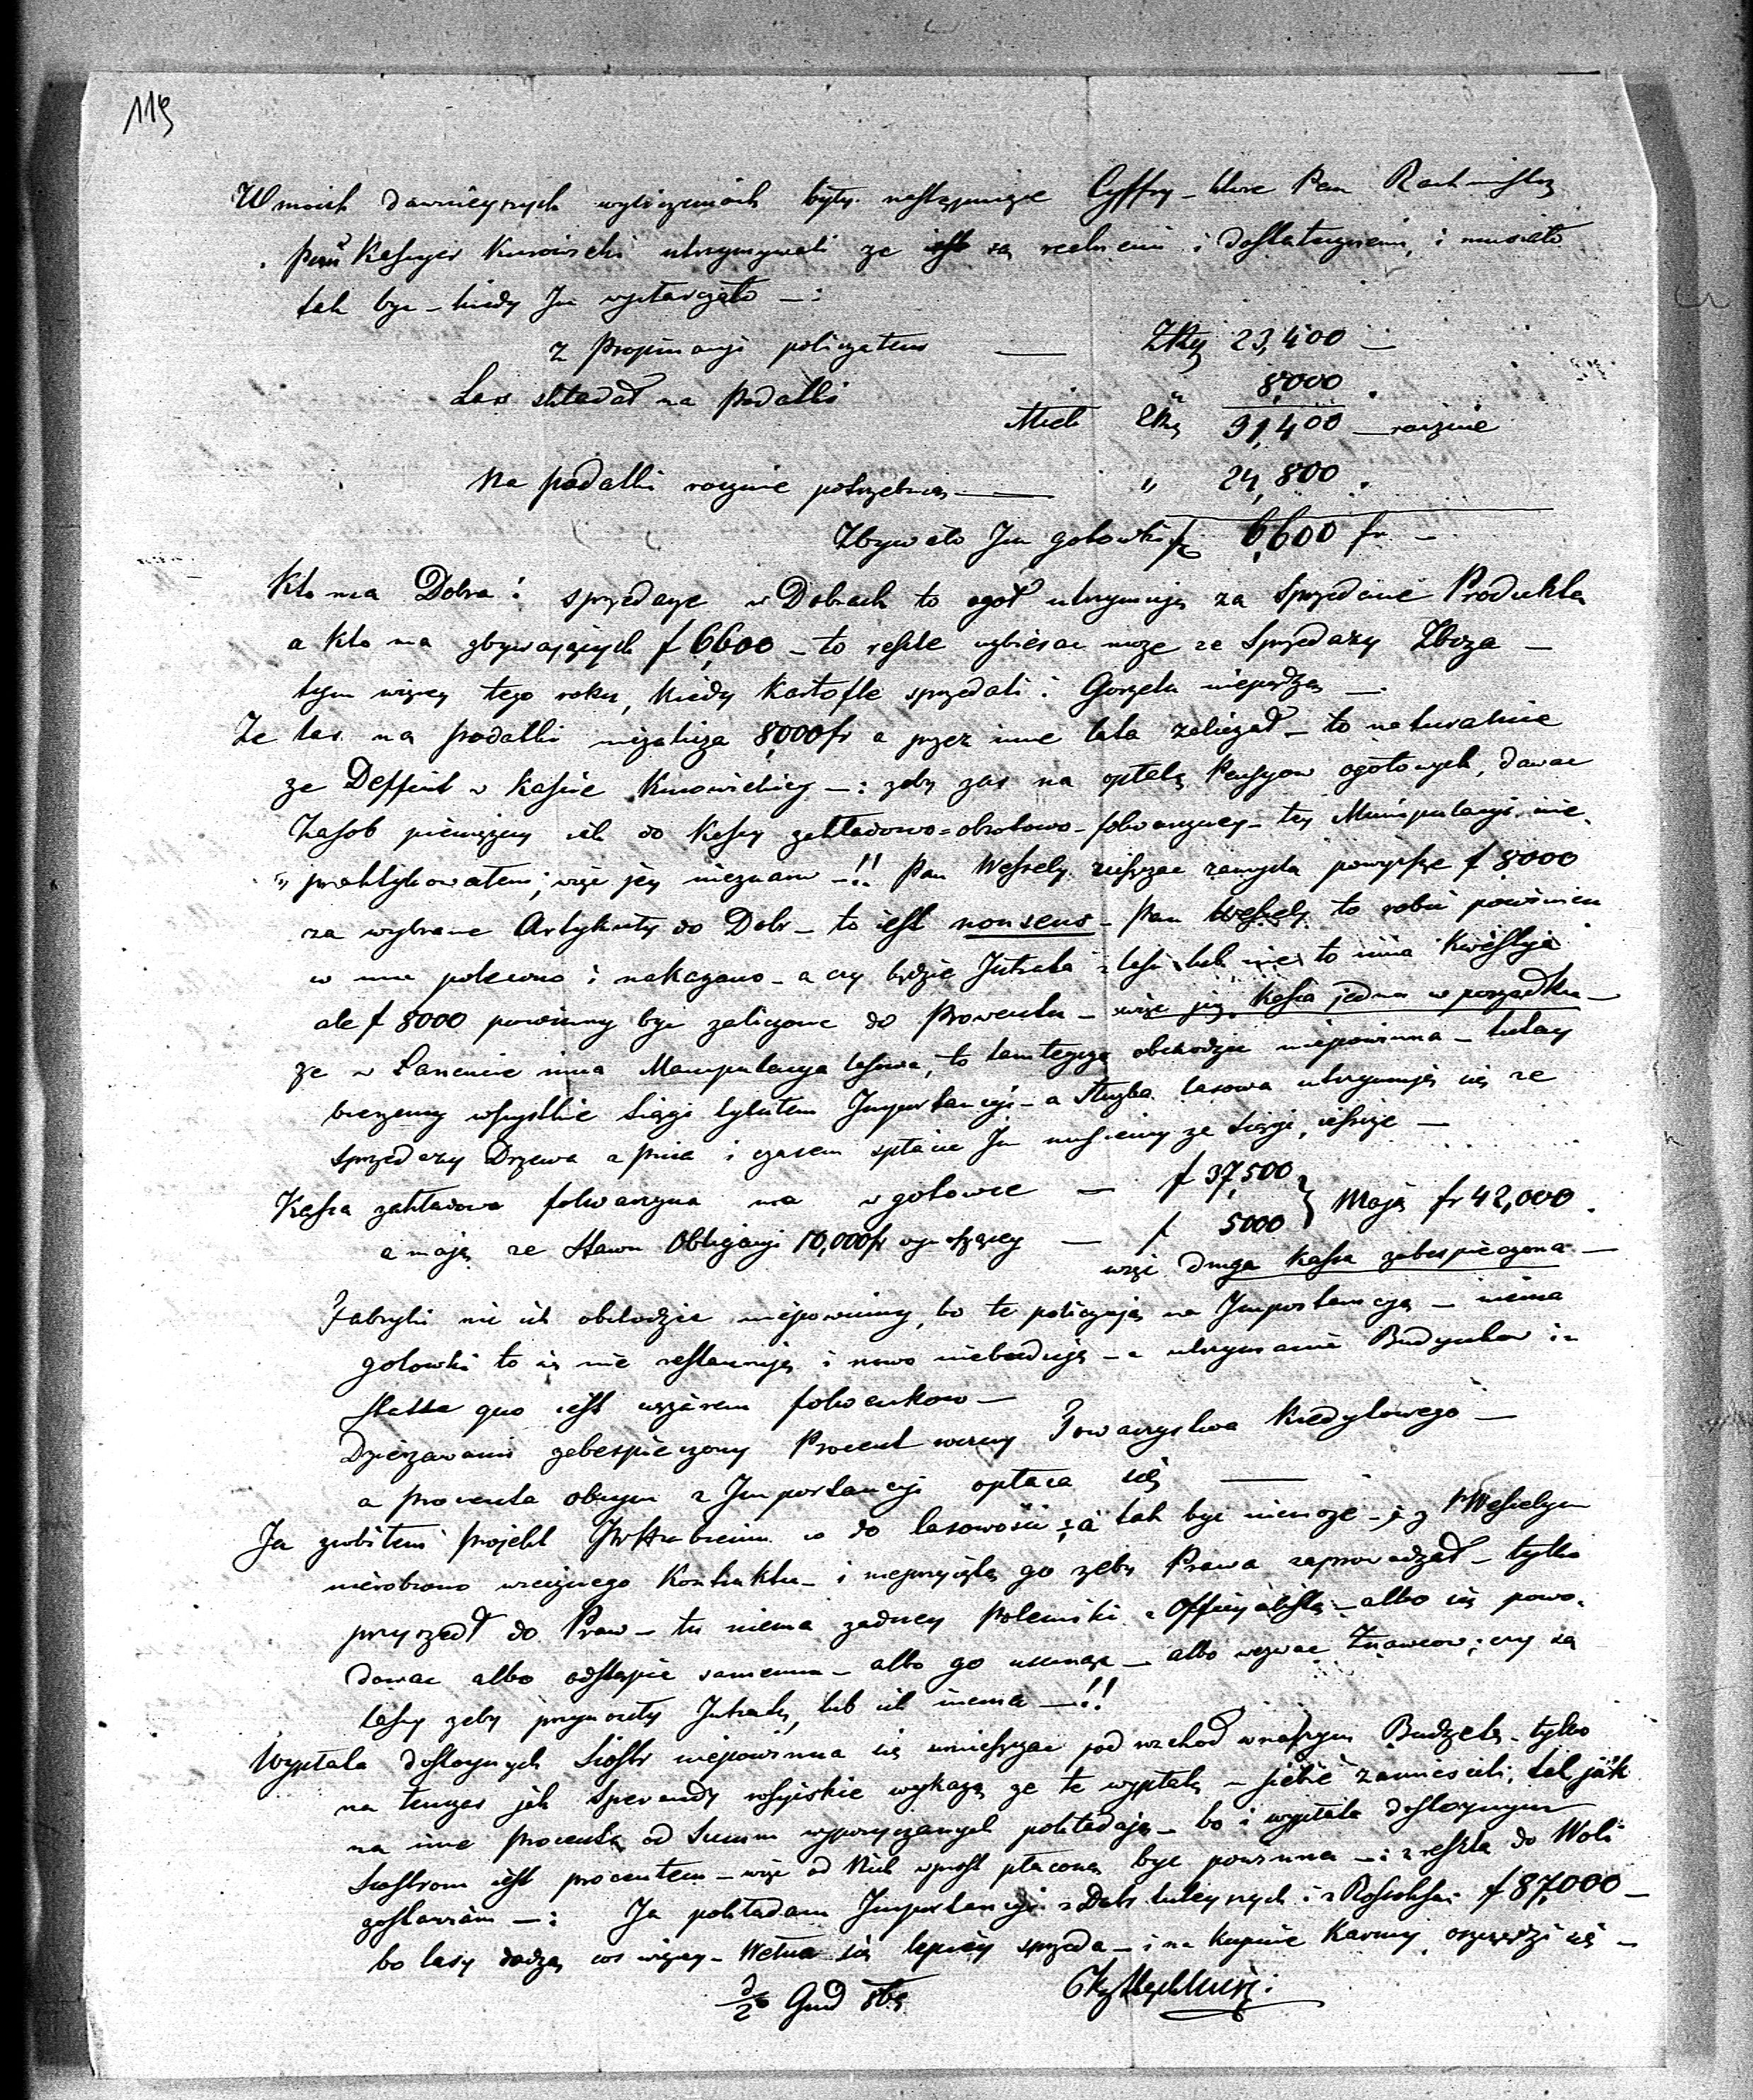 119
W moich dawnieyszych wyliczeniach były następujące Cyffry - które Pan Rachmistrz
Pan Kassyer utrzymywali ze są realnemi i dostatecznemi, i musiało
tak byc - kiedy Im wystarczało - :
z Propinacyi policzałem — ZRy 23,400 —
Las składał na Podatki " 8,000 .
Mieli ZRy 31,400 - rocznie
Na podatki rocznie potrzebują — " 24,800 .
Zbywało Im gotowki f 6,600 fr -
Kto ma Dobra i sprzedaze w Dobrach to ogół utrzymują za Sprzedane Produkta
a kto ma zbywających f 6,600 - to resztę wybierac moze ze Sprzedazy Zboza -
tym więcey tego roku, kiedy Kartofle sprzedali i Gorzelni niepędzą —
Ze las na podatki niezalicza 8,000 fr a przez inne lata zaliczał - to naturalnie
ze Defficit w Kassie - : zeby zas na opłatę Pensyow ogołowych, dawac
Zasob pieniężny ich do Kassy zakładowo-obrotowo-folwarczney - tey Manipulacyi nie-
" praktykowałem; więc jey nieznam - !! Pan Wessely powyższe f 8,000
za wybrane Artykuły do Dobr - to iest nonsens - Pan Wessely to robić powinien
w mu polecono i nakazano - a czy będzie Intrata z lasu lub nie to inna Kwestyja
ale f 8000 powinny byc zaliczone do Prowentu - więc już Kassa jedna w porządku -
ze w Łancucie inna Manipulacya lasowa, to tamtejszą obchodzic niepowinna - tutay
bierzemy wszystkie Sięgi tytułem Importancyi - a Służba lasowa utrzymuje się ze
sprzedazy Drzewa z pnia i czasem spłacic Im musiemy ze Sięgi, iescze —
Kassa zakładowa folwarczna ma w gotowce — f 37,500 } Mają fr 42,000 .
a mają ze Stawu Obligacyi 10,000 fr wynoszącey — f 5000
więc druga Kassa zabespieczona -
Fabryki nic ich obchodzic niepowinny, bo te policzają na Importancyą - niema
gotowki to się nie restaurują i nowo niebudują - a utrzymanie Budynkow in
statu quo iest cięzarem folwarkow —
Dzierzawami zabespieczony Procent Towarzystwa Kredytowego —
a procenta z Importancyi opłaca się —
Ja zrobiłem projekt co do lasowości tak byc niemoze - z P Wesselym
nierobiono wiecznego Kontraktu - i nieprzyięto go zeby Prawa zaprowadzał - tylko
przyszedł do Praw - tu niema zadney Polemiki z Officyalistą - albo się powo-
dowac albo odstąpic samemu - albo go usunąc - albo wezwac Znawcow; czy są
lasy zeby przynosiły Intratę, lub ich niema - !!
Wypłata dostoynych Siostr niepowinna się umieszczac pod wzchod w naszym Budzetu - tylko
na tenczas jak Sperandy rossyiskie wykazą ze te wypłatę - siebie zamiescili, tak jak
na inne procenta od Summ wypozyczanych pokładają - bo i wypłata dostoynym
Siostrom iest procentem - więc od Nich wprost płaconą byc powinna - : z resztą do Woli
zostawiam - : Ja pokładam Importancyi z Dobr tuteyszych i z f 87,000 -
bo lasy dadzą cos więcey - Wełna się lepiey sprzeda - i na kupnie Karmy oszczędzi się -